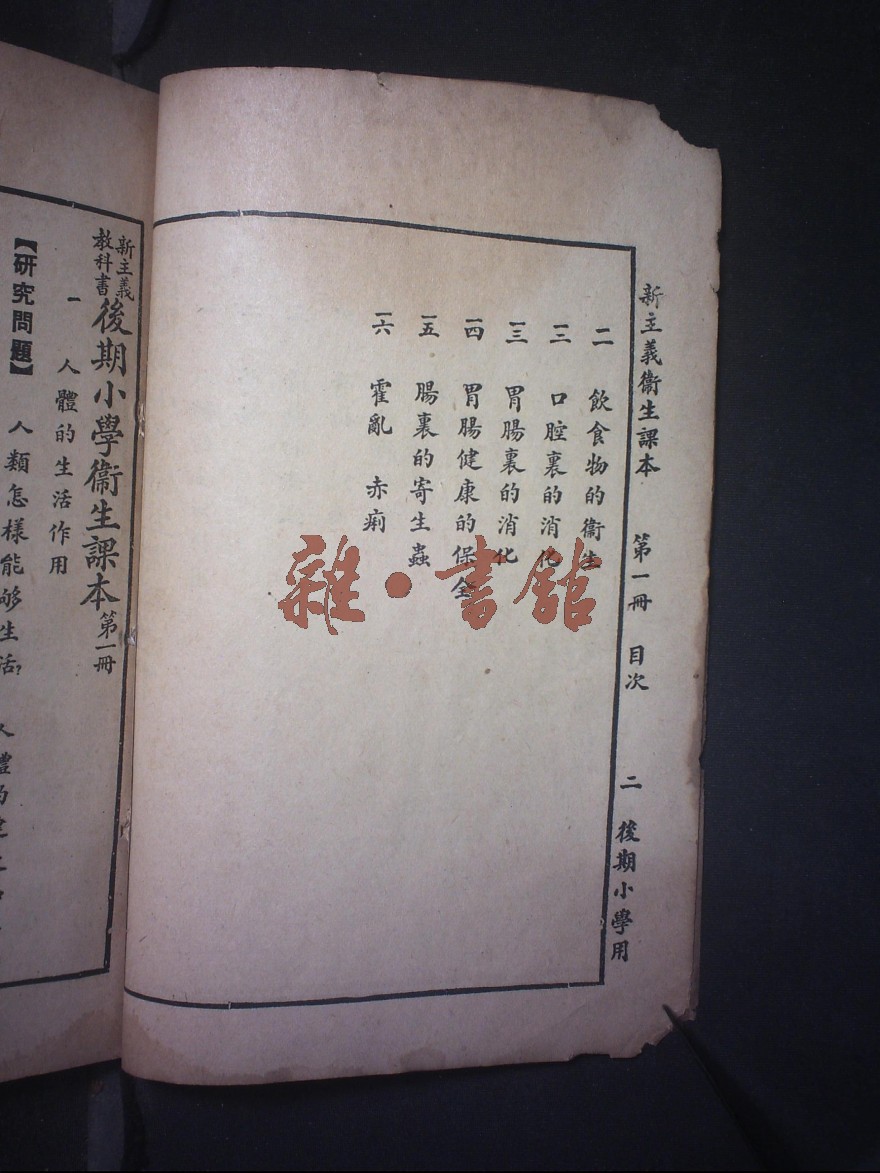 新主義衞生課本　第一冊　目次　二　後期小學用
一一　飲食物的衞生
一二　口腔裏的消化
一三　胃腸裏的消化
一四　胃腸健康的保全
一五　腸裏的寄生蟲
一六　霍亂　赤痢
新主義教科書後期小學衞生課本第一冊
一　人體的生活作用
【研究問題】　人類怎樣能够生活?
雜·書館